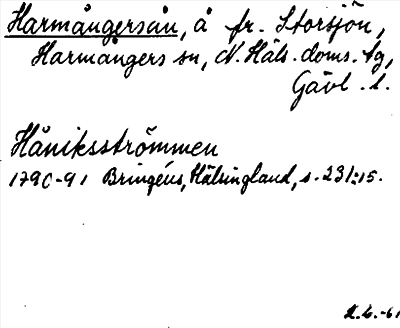 Harmångersån, å fr. Storsjön,
Harmångers sn, N. Häls. doms. tg,
Gävl. l.
Håniksströmmen
1790-91 Bringéus, Hälsingland, s. 231:15.